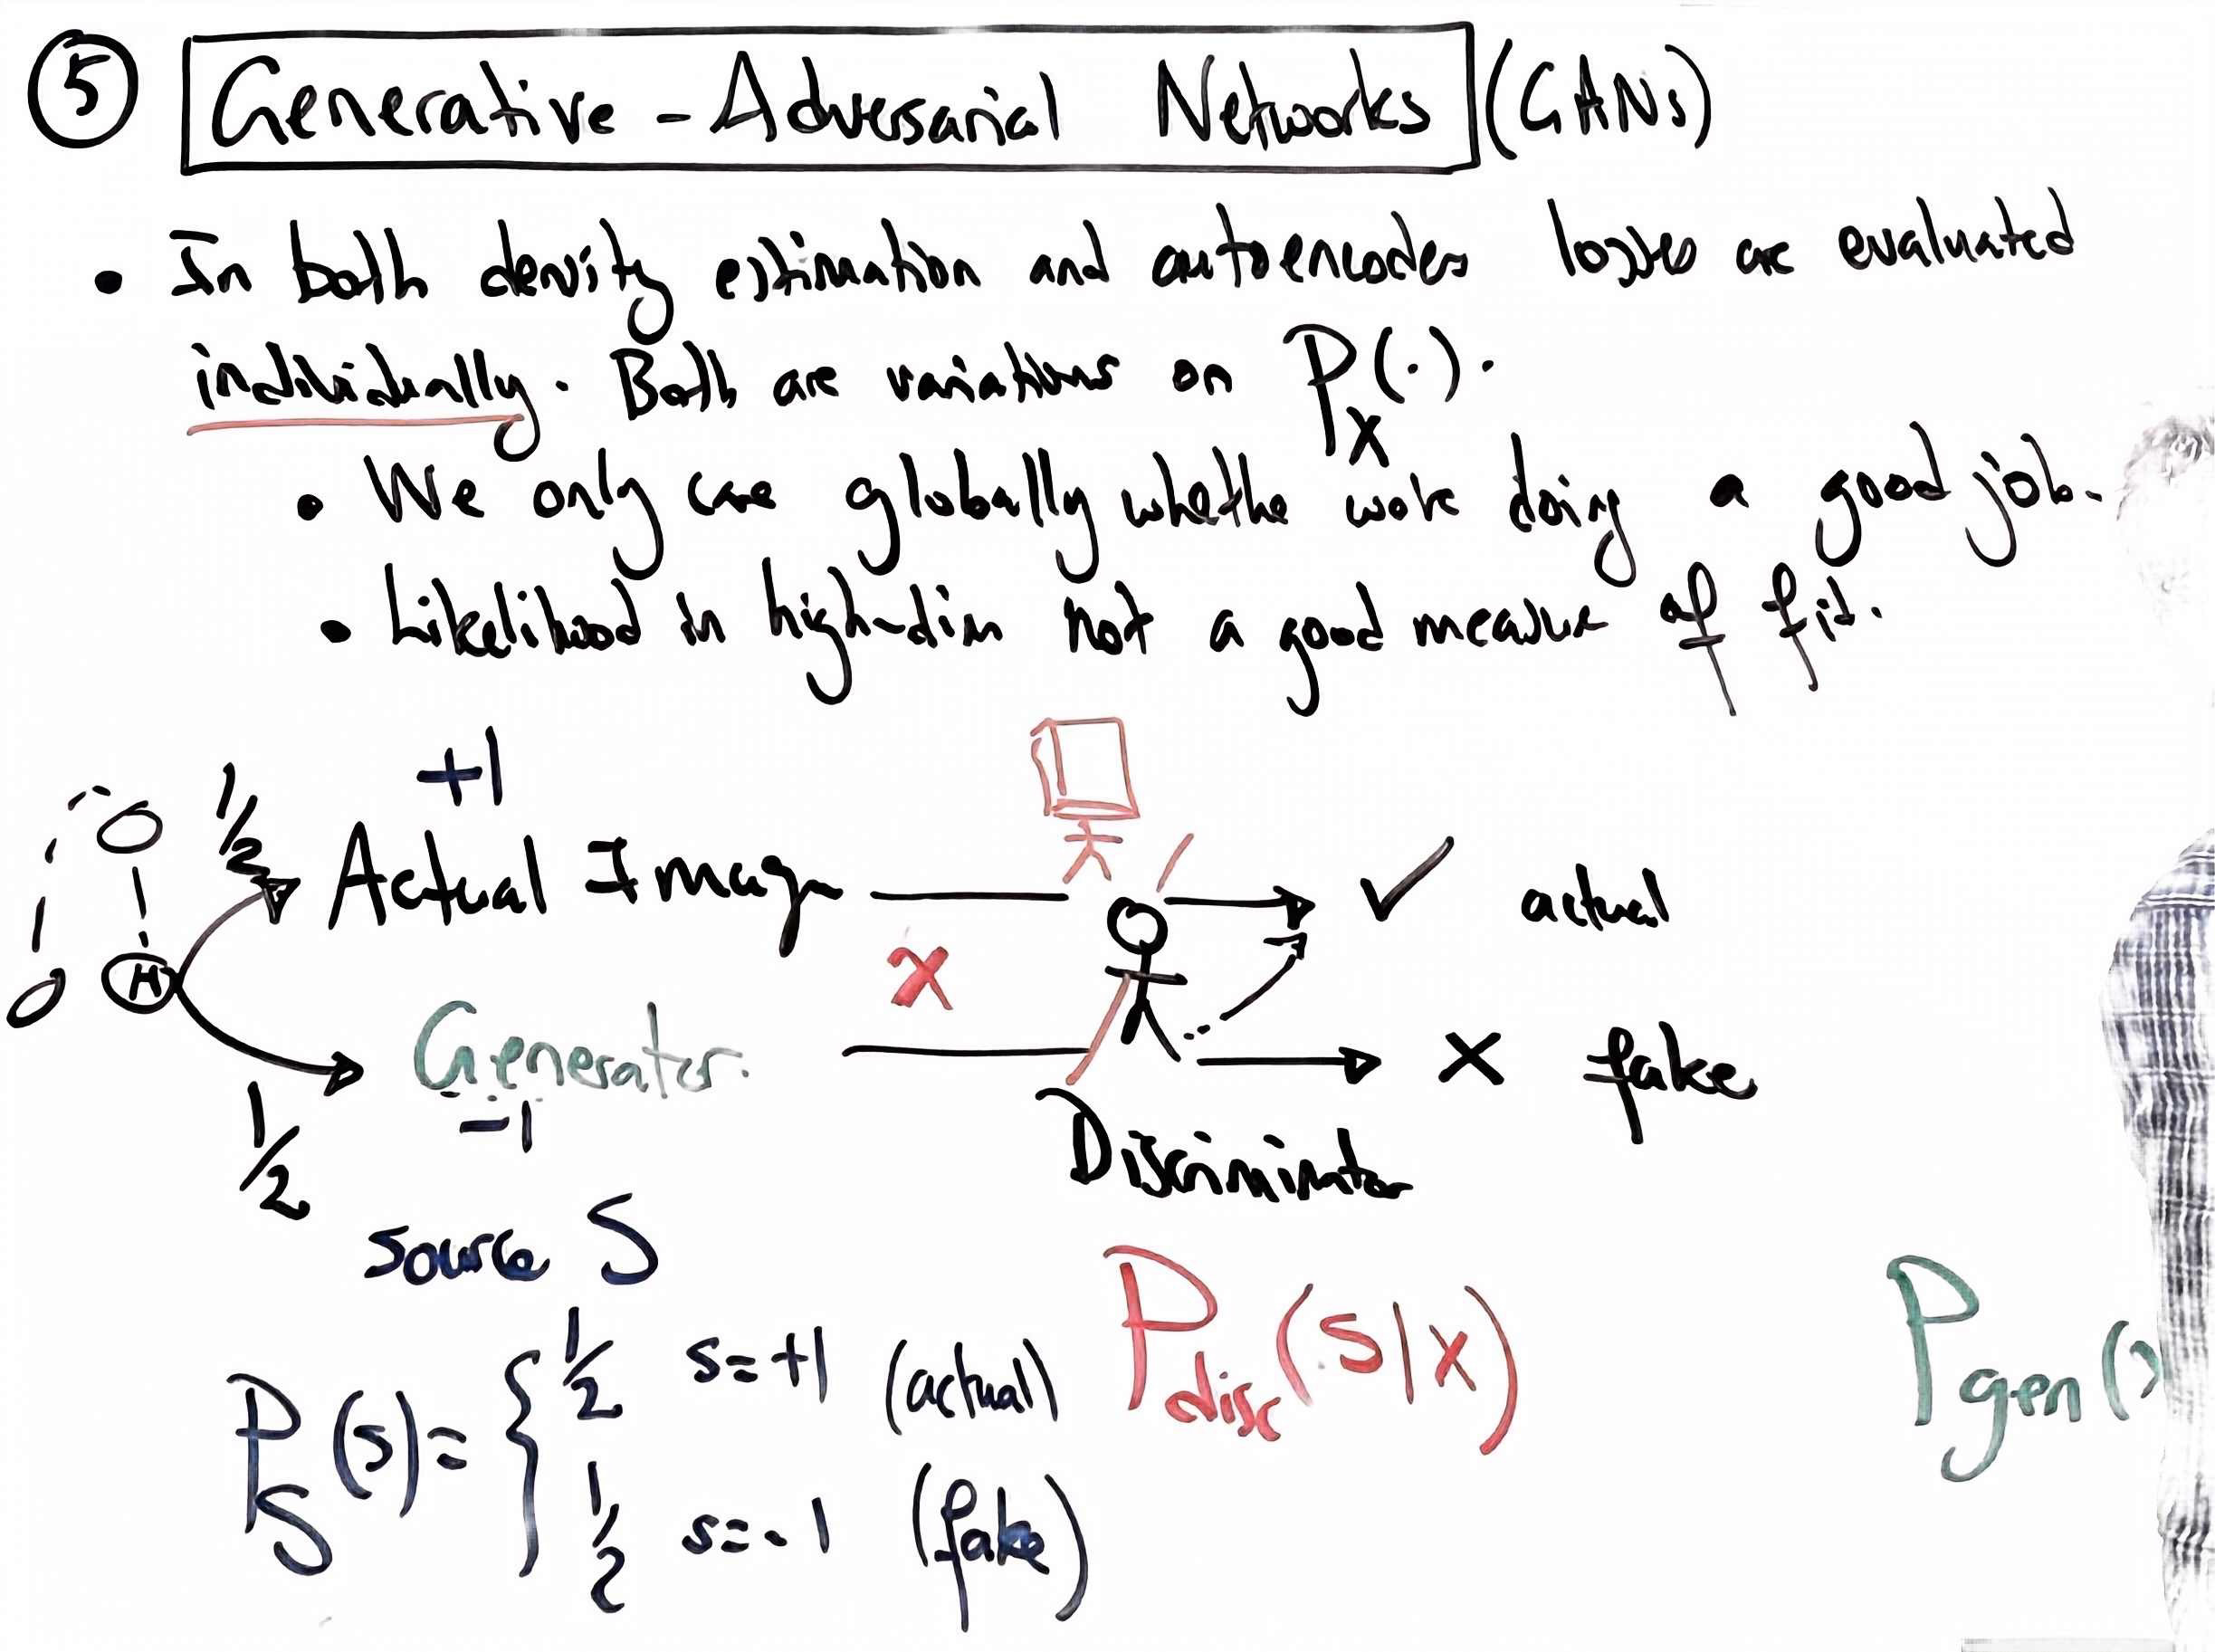 5 Generative-Adversarial Networks (GANs)
• In both density estimation and autoencoders losses are evaluated
individually. Both are variations on P_X(·).
• We only care globally whether we're doing a good job.
• Likelihood in high-dim not a good measure of fit.
+1
1/2 Actual Image ✓ actual
x
H Generator × fake
-1
1/2 Discriminator
source S
P_S(s) = { 1/2 s=+1 (actual)
1/2 s=-1 (fake)
P_disc(s|x)
P_gen(